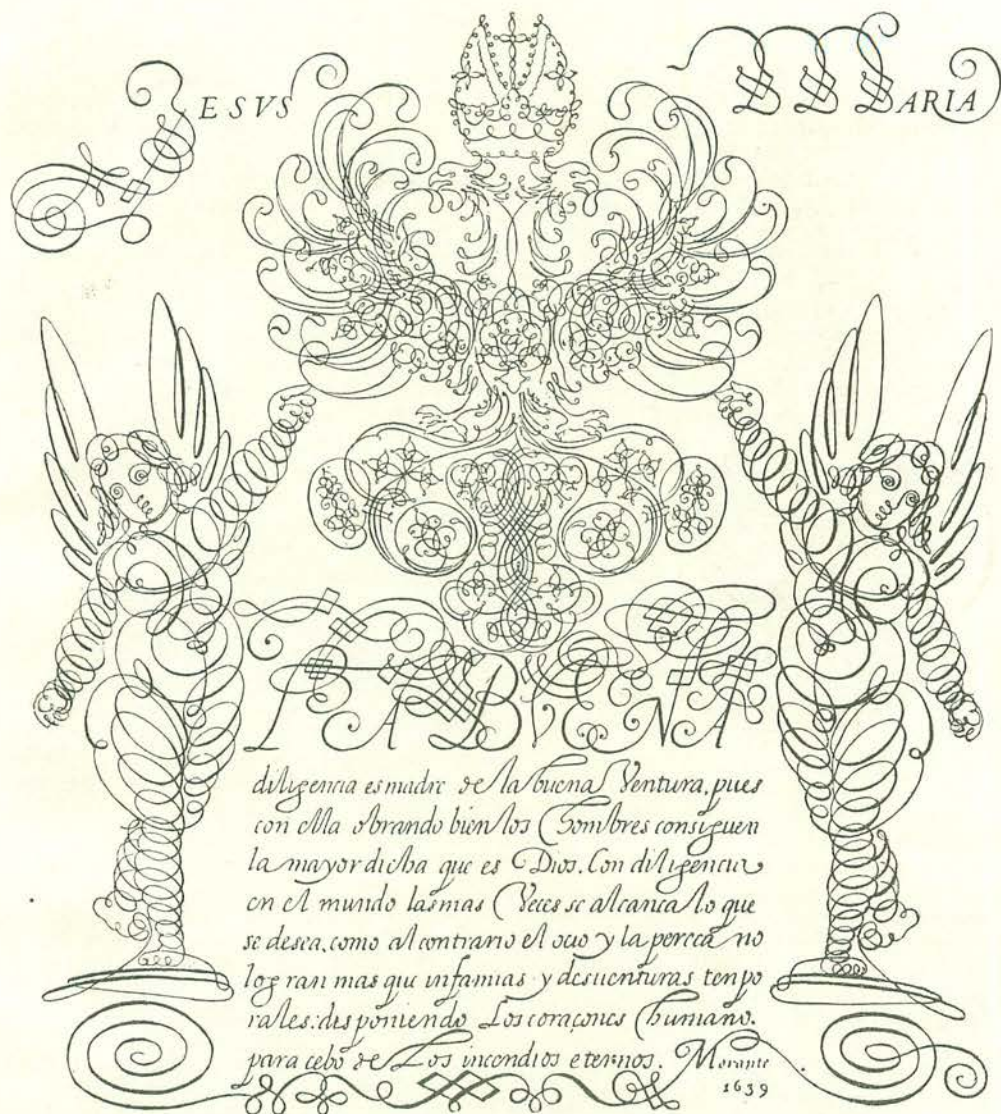 JESVS MARIA
LA BVENA
diligencia es madre de la buena Ventura, pues
con ella obrando bien los Hombres consiguen
la mayor dicha que es Dios. Con diligencia
en el mundo las mas Veces se alcanca lo que
se desea, como al contrario el ocio y la pereca no
logran mas que infamias y desuenturas tenpo
rales: disponiendo Los coraçones humano.
para cebo de Los incendios eternos. Morante
1639